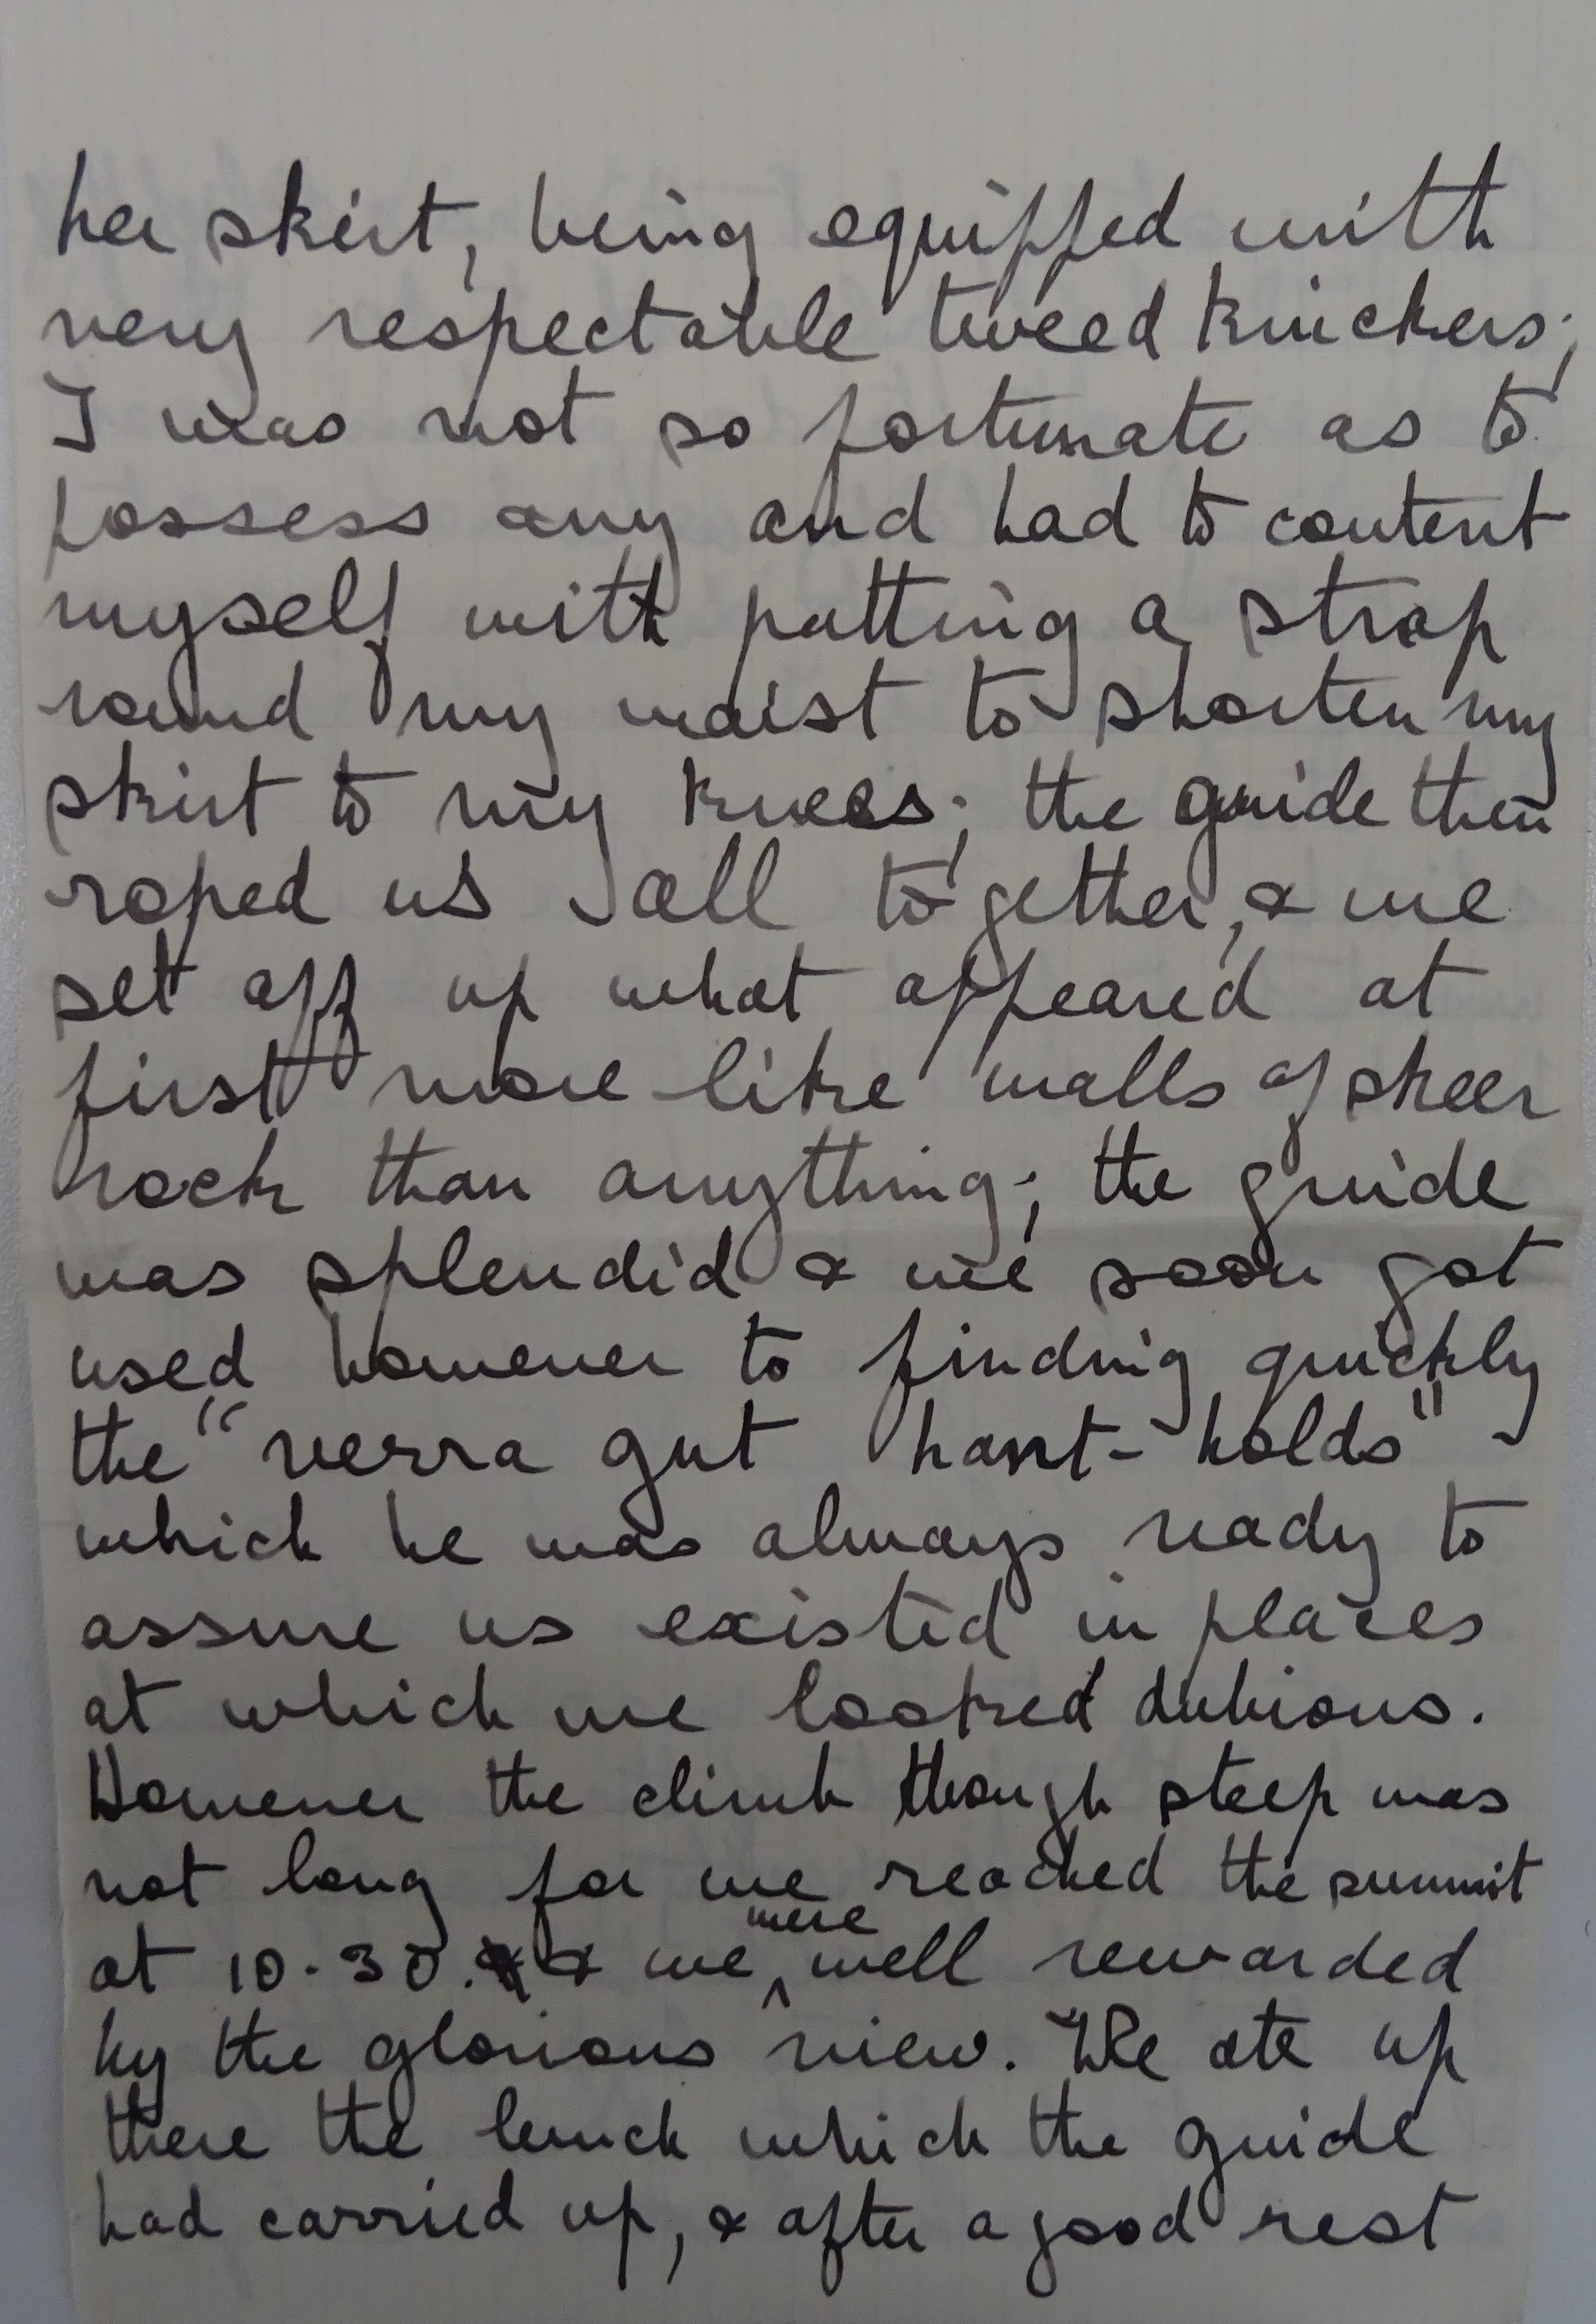 her skirt, being equipped with
very respectable tweed knickers;
I was not so fortunate as to
possess any and had to content
myself with putting a strap
round my waist to shorten my
skirt to my knees; the guide then
roped us all together, & we
set off up what appeared at
first more like walls of sheer
rock than anything; the guide
was splendid & we soon got
used however to finding quickly
the "verra gut hant-holds"
which he was always ready to
assure us existed in places
at which we looked dubious.
However the climb though steep was
not long for we reached the summit
at 10.30. & we were well rewarded
by the glorious view. We ate up
there the lunch which the guide
had carried up, & after a good rest